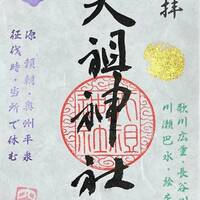 拝
歌川広重・長谷川
川瀬巴水・絵を
天祖神社
源頼朝・奥州平泉
征伐時・当所で休む